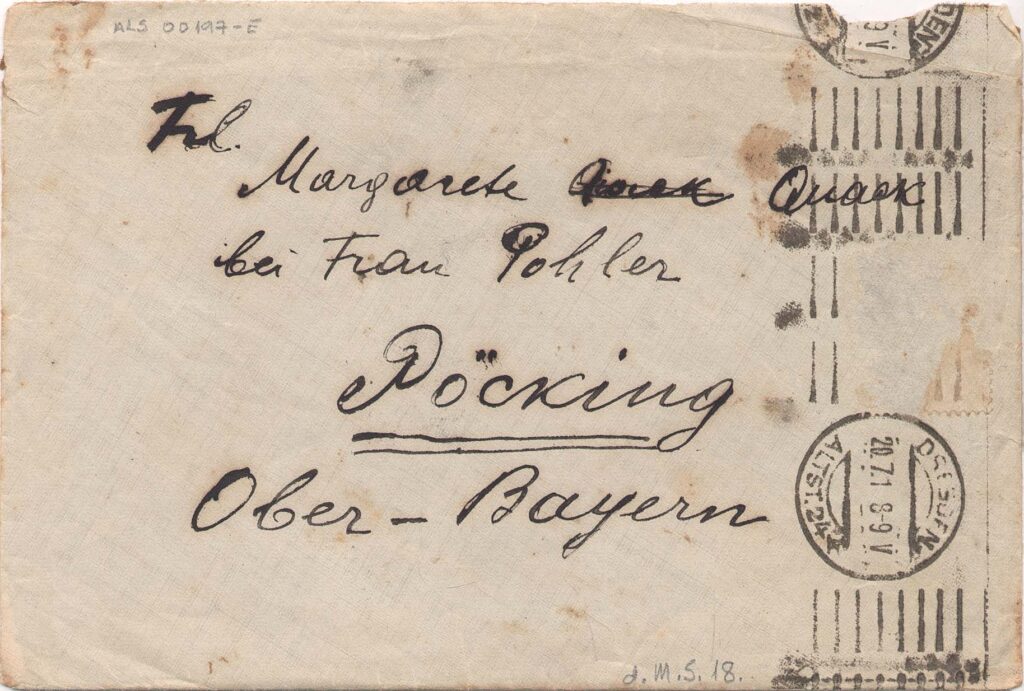 ALS 00197-E
Frl.
Margarete Quack
bei Frau Pohler
Pöcking
Ober-Bayern
DRESDEN
ALTST. 24
20.7.1 8-9 V
DEN
9 V
d. M. S. 18.